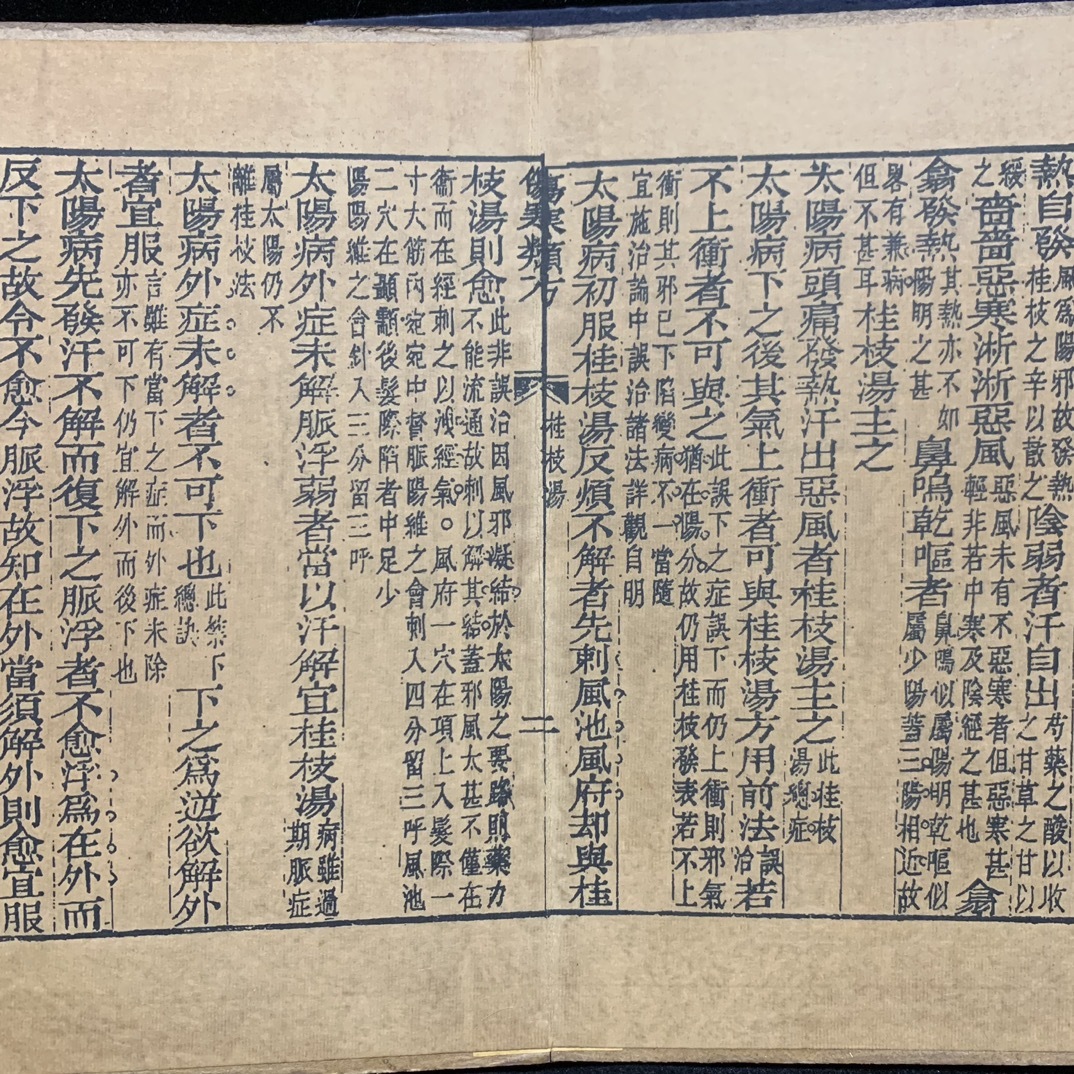 熱自發風爲陽邪故發熱桂枝之辛以散之陰弱者汗自出芍藥之酸以收之甘草之甘以
緩之嗇嗇惡寒淅淅惡風惡風未有不惡寒者但惡寒甚輕非若中寒及陰經之甚也翕
翕發熱其熱亦不如陽明之甚鼻鳴乾嘔者鼻鳴似屬陽明乾嘔似屬少陽葢三陽相近故
畧有兼病但不甚耳桂枝湯主之
太陽病頭痛發熱汗出惡風者桂枝湯主之此桂枝湯總症
太陽病下之後其氣上衝者可與桂枝湯方用前法誤治若
不上衝者不可與之此誤下之症誤下而仍上衝則邪氣猶在陽分故仍用桂枝發表若不上
衝則其邪已下陷變病不一當隨宜施治論中誤治諸法詳觀自明
太陽病初服桂枝湯反煩不解者先刺風池風府却與桂
傷寒類方 桂枝湯 二
枝湯則愈此非誤治因風邪凝結於太陽之要路則藥力不能流通故刺以解其結蓋邪風太甚不僅在
衞而在經刺之以洩經氣。風府一穴在項上入髮際一寸大筋內宛宛中督脈陽維之會刺入四分留三呼風池
二穴在顳顬後髮際陷者中足少陽陽維之會針入三分留三呼
太陽病外症未解脈浮弱者當以汗解宜桂枝湯病雖過期脈症
屬太陽仍不離桂枝法
太陽病外症未解者不可下也此禁下總訣下之爲逆欲解外
者宜服言雖有當下之症而外症未除亦不可下仍宜解外而後下也
太陽病先發汗不解而復下之脈浮者不愈浮爲在外而
反下之故令不愈今脈浮故知在外當須解外則愈宜服